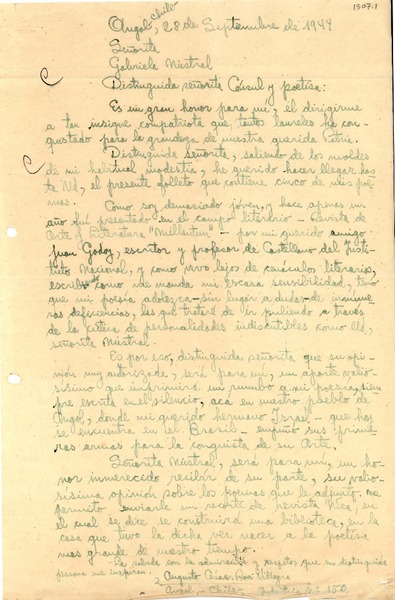 1307.1
Angol, Chile, 28 de Septiembre de 1944
Señorita
Gabriela Mistral
Distinguida señorita Cónsul y poetisa:
Es un gran honor para mí, el dirigirme
a tan insigne compatriota que, tantos laureles ha con-
quistado para la grandeza de nuestra querida Patria.
Distinguida señorita, saliendo de los moldes
de mi habitual modestia, he querido hacer llegar has-
ta Ud, el presente folleto que contiene cinco de mis poe-
mas.
Como soy demasiado joven, y hace apenas un
año fuí presentado en el campo literario - Revista de
Arte y Literatura "Millantún" - por mi querido amigo
Juan Godoy, escritor y profesor de Castellano del Insti-
tuto Nacional, y como vivo lejos de cenáculos literarios,
escribiendo como me manda mi escasa sensibilidad, temo
que mi poesía adolezca - sin lugar a dudas - de inmume-
ras deficiencias, las que trataré de ir puliendo a través
de la crítica de personalidades indiscutibles como Ud,
señorita Mistral.
Es por eso, distinguida señorita que su opi-
nión muy autorizada, será para mí, un aporte valio-
sísimo que imprimirá un rumbo a mi poesía, siem-
pre escrita en el silencio, acá en nuestro pueblo de
Angol, donde mi querido hermano Israel - que hoy
se encuentra en el Brasil - empuñó sus prime-
ras armas para la conquista de su Arte.
Señorita Mistral, será para mí, un ho-
nor inmerecido recibir de su parte, su valio-
sísima opinión sobre los poemas que le adjunto. Me
permito enviarle un recorte de revista Vea, en
el cual se dice se construirá una biblioteca, en la
casa que tuvo la dicha ver nacer a la poetisa
más grande de nuestro tiempo.
La saluda con la admiración y respetos que su distinguida
persona me inspiran.
Augusto César Roa Villagra
Angol, - Chile - 150.